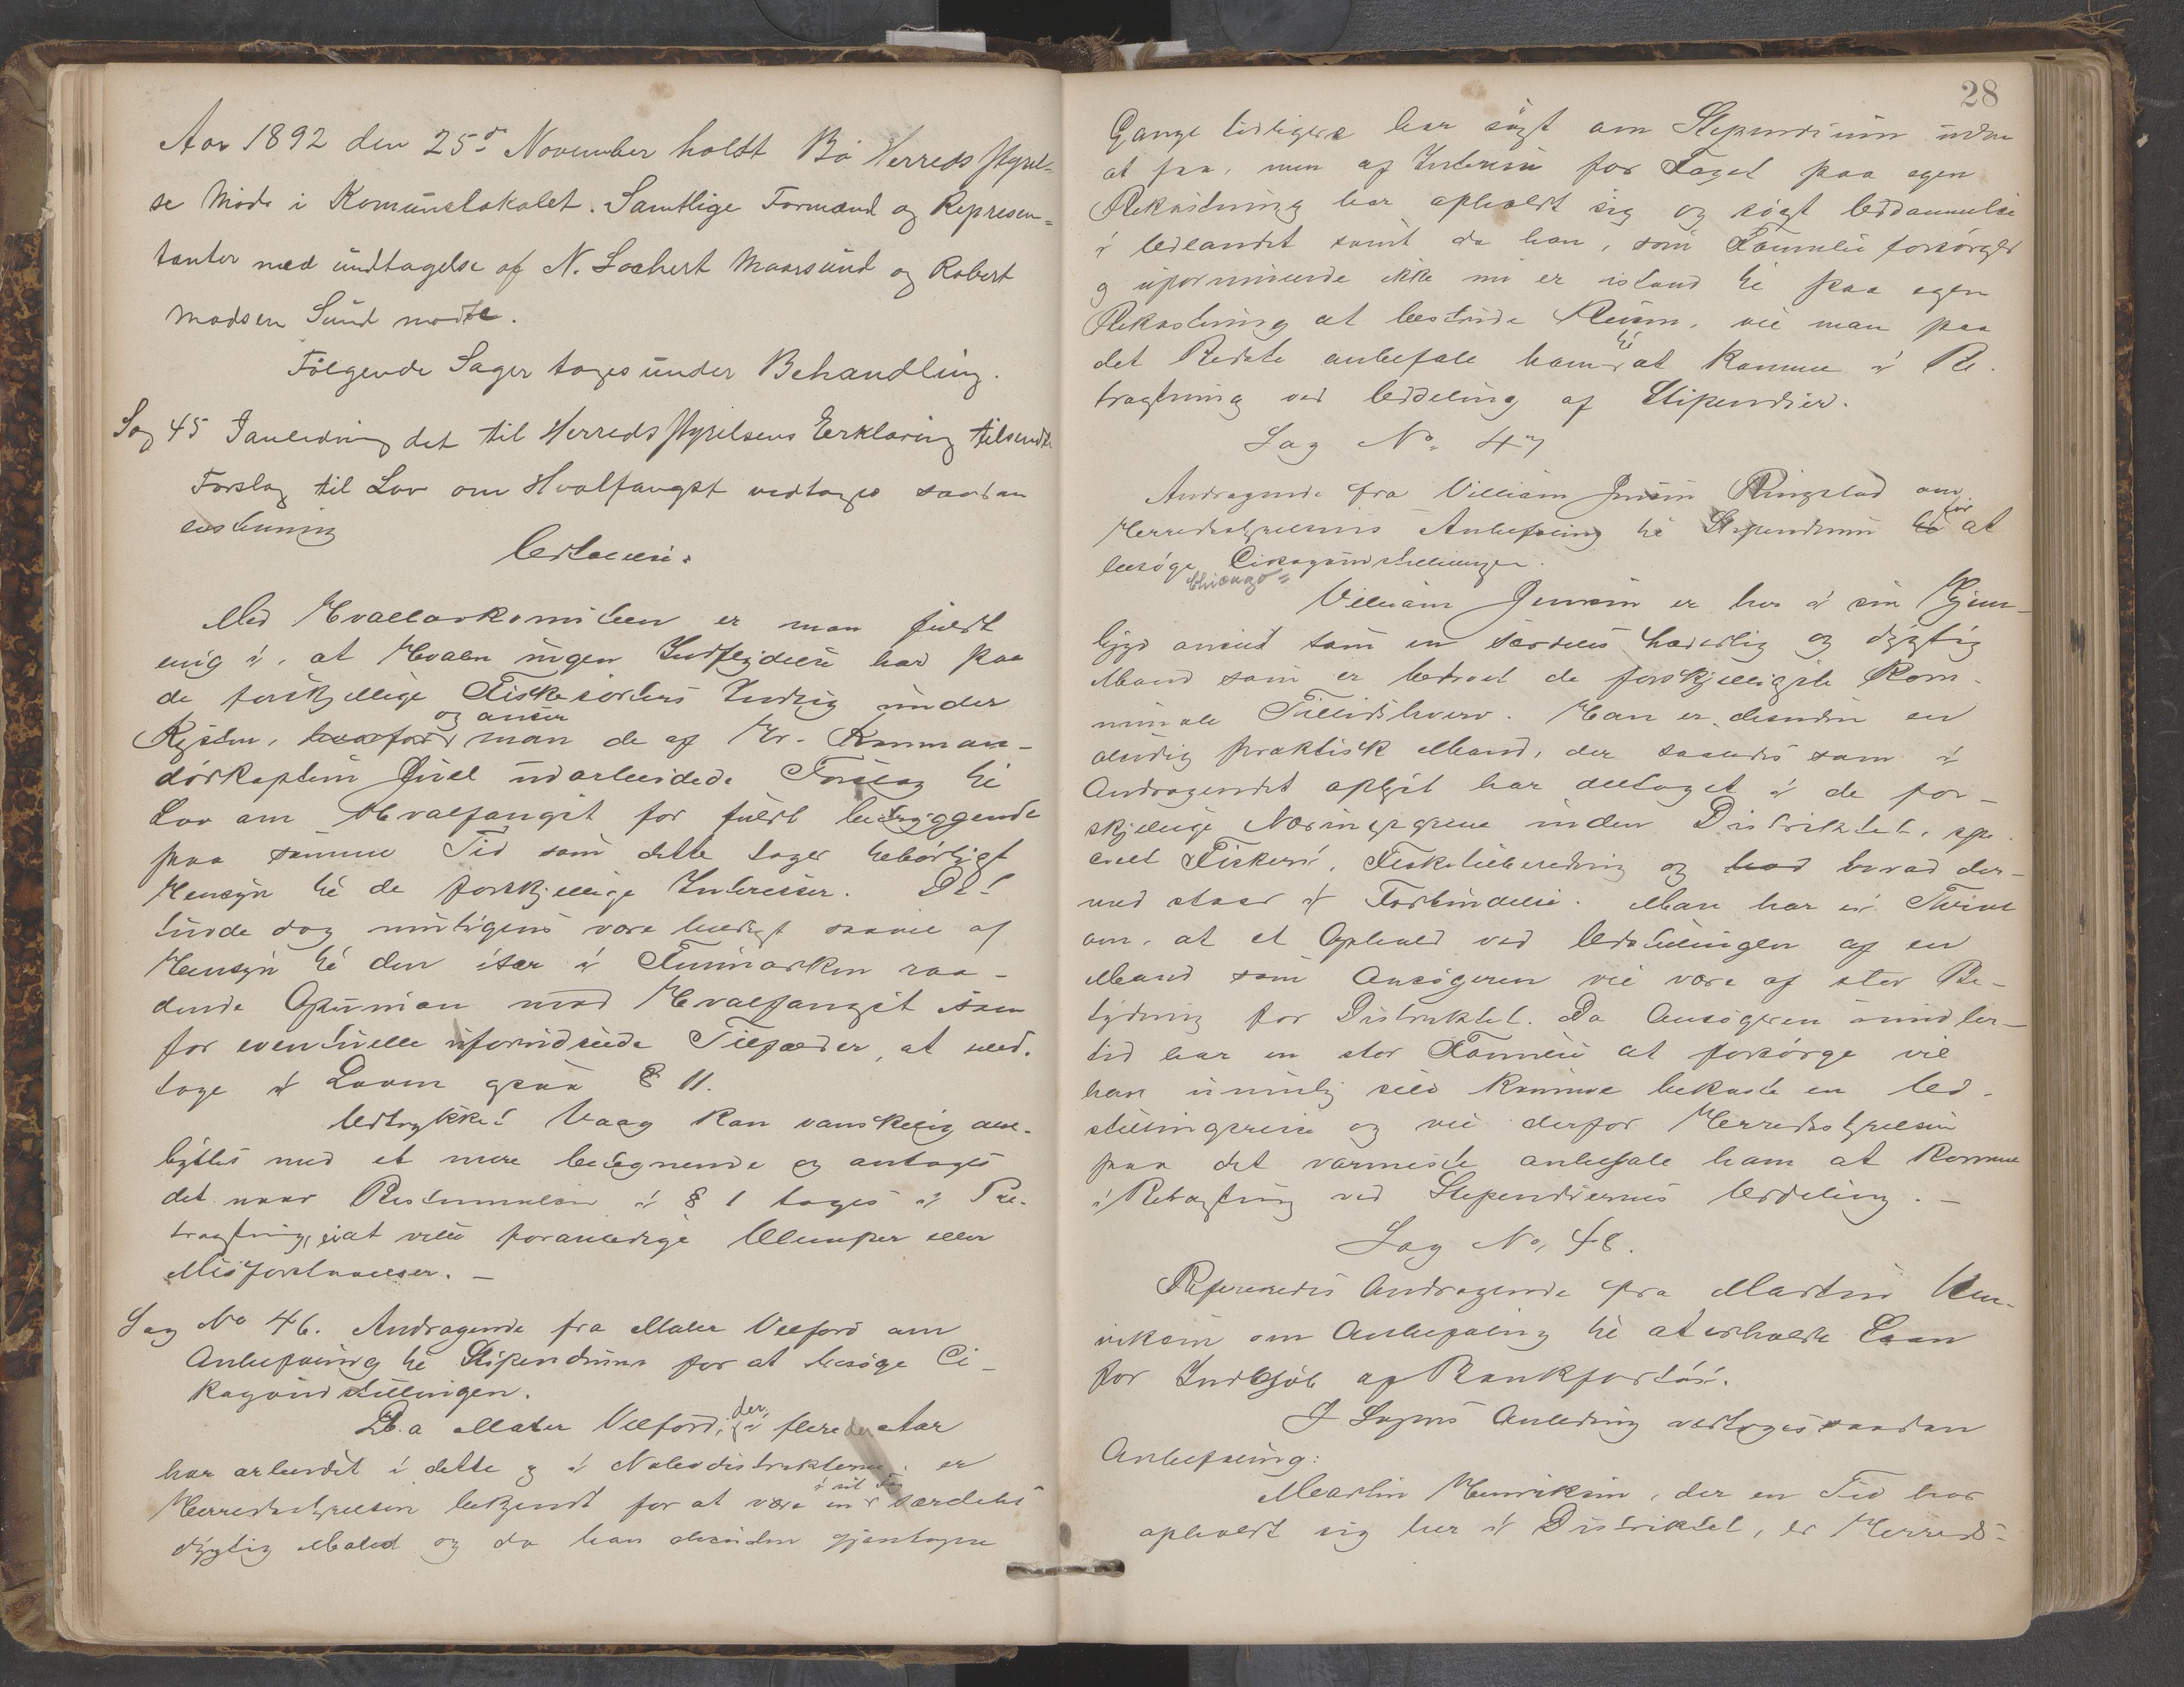 Aar 1892 den 25de November holdt Bø Herreds styrel-
se Møde i Komunelokalet. Samtlige Formænd og Represen-
tanter med undtagelse af N. Lochert Maarsund og Robert
Madsen Sund mødte.
Følgende Sager toges under Behandling.
Sag 45 I anledning det til Herredsstyrelsens Eerklæring tilsendte
Forslag til Lov om Hvalfangst vedtoges saadan
Med Hvallovkomiteen er man fuldt
enig i, at Hvalen ingen Indflydelse har paa
de forskjellige Fiskesorters Indsig under
Kysten, hvorfor og anser man de af Hr. Komman-
dørkaptein Juel udarbeidede Forslag til
Lov om Hvalfangst for fuldt betryggende
paa samme Tid som dette tager tilbørligt
Hensyn til de forskjellige Interesser. Det
turde dog muligens være heldigt saavel af
Hensyn til den især i Finmarken raa-
dende Opinion mod Hvalfangst som
for eventuelle uforudseede Tilfælder, at med-
tage i Loven ogsaa § 11.
Udtrykket Vaag kan vanskelig om-
byttes med et mere betegnende og antages
det naar Bestemmelsen i § 1 tages i Be-
tragtning, ei at ville foranledige Ulemper eller
Misforstaaelser. -
Sag No 46. Andragende fra Maler Velford om
Anbefaling til Stipendium for at besøge Ci-
kagoudstillingen.
Da Maler Velford, der i flere Aar
har arbeidet i dette og i Nabodistrikterne, er
Herredsstyrelsen bekjendt for at være en i sit Fag særdeles
dygtig Maler og da han desuden gjentagne
28
Gange tidligere har søgt om Stipendium uden
at faa, men af Interesse for Faget paa egen
Bekostning har opholdt sig og søgt Uddannelse
i Udlandet samt da han, som Familieforsørger
og uformuende ikke nu er istand til paa egen
Bekostning at bestride Reisen, vil man paa
det Bedste anbefale ham til at komme i Be-
tragtning ved Uddeling af Stipendier.
Sag No. 47
Andragende fra Villiam Jensen Ringstad om
Herredsstyrelsens Anbefaling til Stipendium til for at
besøge Cikagoudstillingen.
Chicago=
Villiam Jensen er her i sin Hjem-
bygd anseet som en særdeles hæderlig og dygtig
Mand som er betroet de forskjelligste Kom-
munale Tillidshverv. Han er desuden en
alsidig praktisk Mand, der saaledes som i
Andragendet oplyst har deltaget i de for-
skjellige Næringsgrene inden Distriktet, spe-
cielt Fiskeri, Fisketilberedning og hvad der-
med staar i Forbindelse. Man har ei Tvivl
om, at et Ophold ved Udstillingen af en
Mand som Ansøgeren vil være af stor Be-
tydning for Distriktet. Da Ansøgeren imidler-
tid har en stor Familie at forsørge vil
han umulig selv kunne bekoste en Ud-
stillingsreise og vil derfor Herredsstyrelsen
paa det varmeste anbefale ham at komme
i Betragtning ved Stipendiernes Uddeling. -
Sag No. 48.
Refereredes Andragende fra Martin Hen-
riksen om Anbefaling til at erholde Laan
for Indkjøb af Bankfartøi.
I Sagens Anledning vedtoges saadan
Anbefaling:
Martin Henriksen, der en Tid har
opholdt sig her i Distriktet, er Herreds-